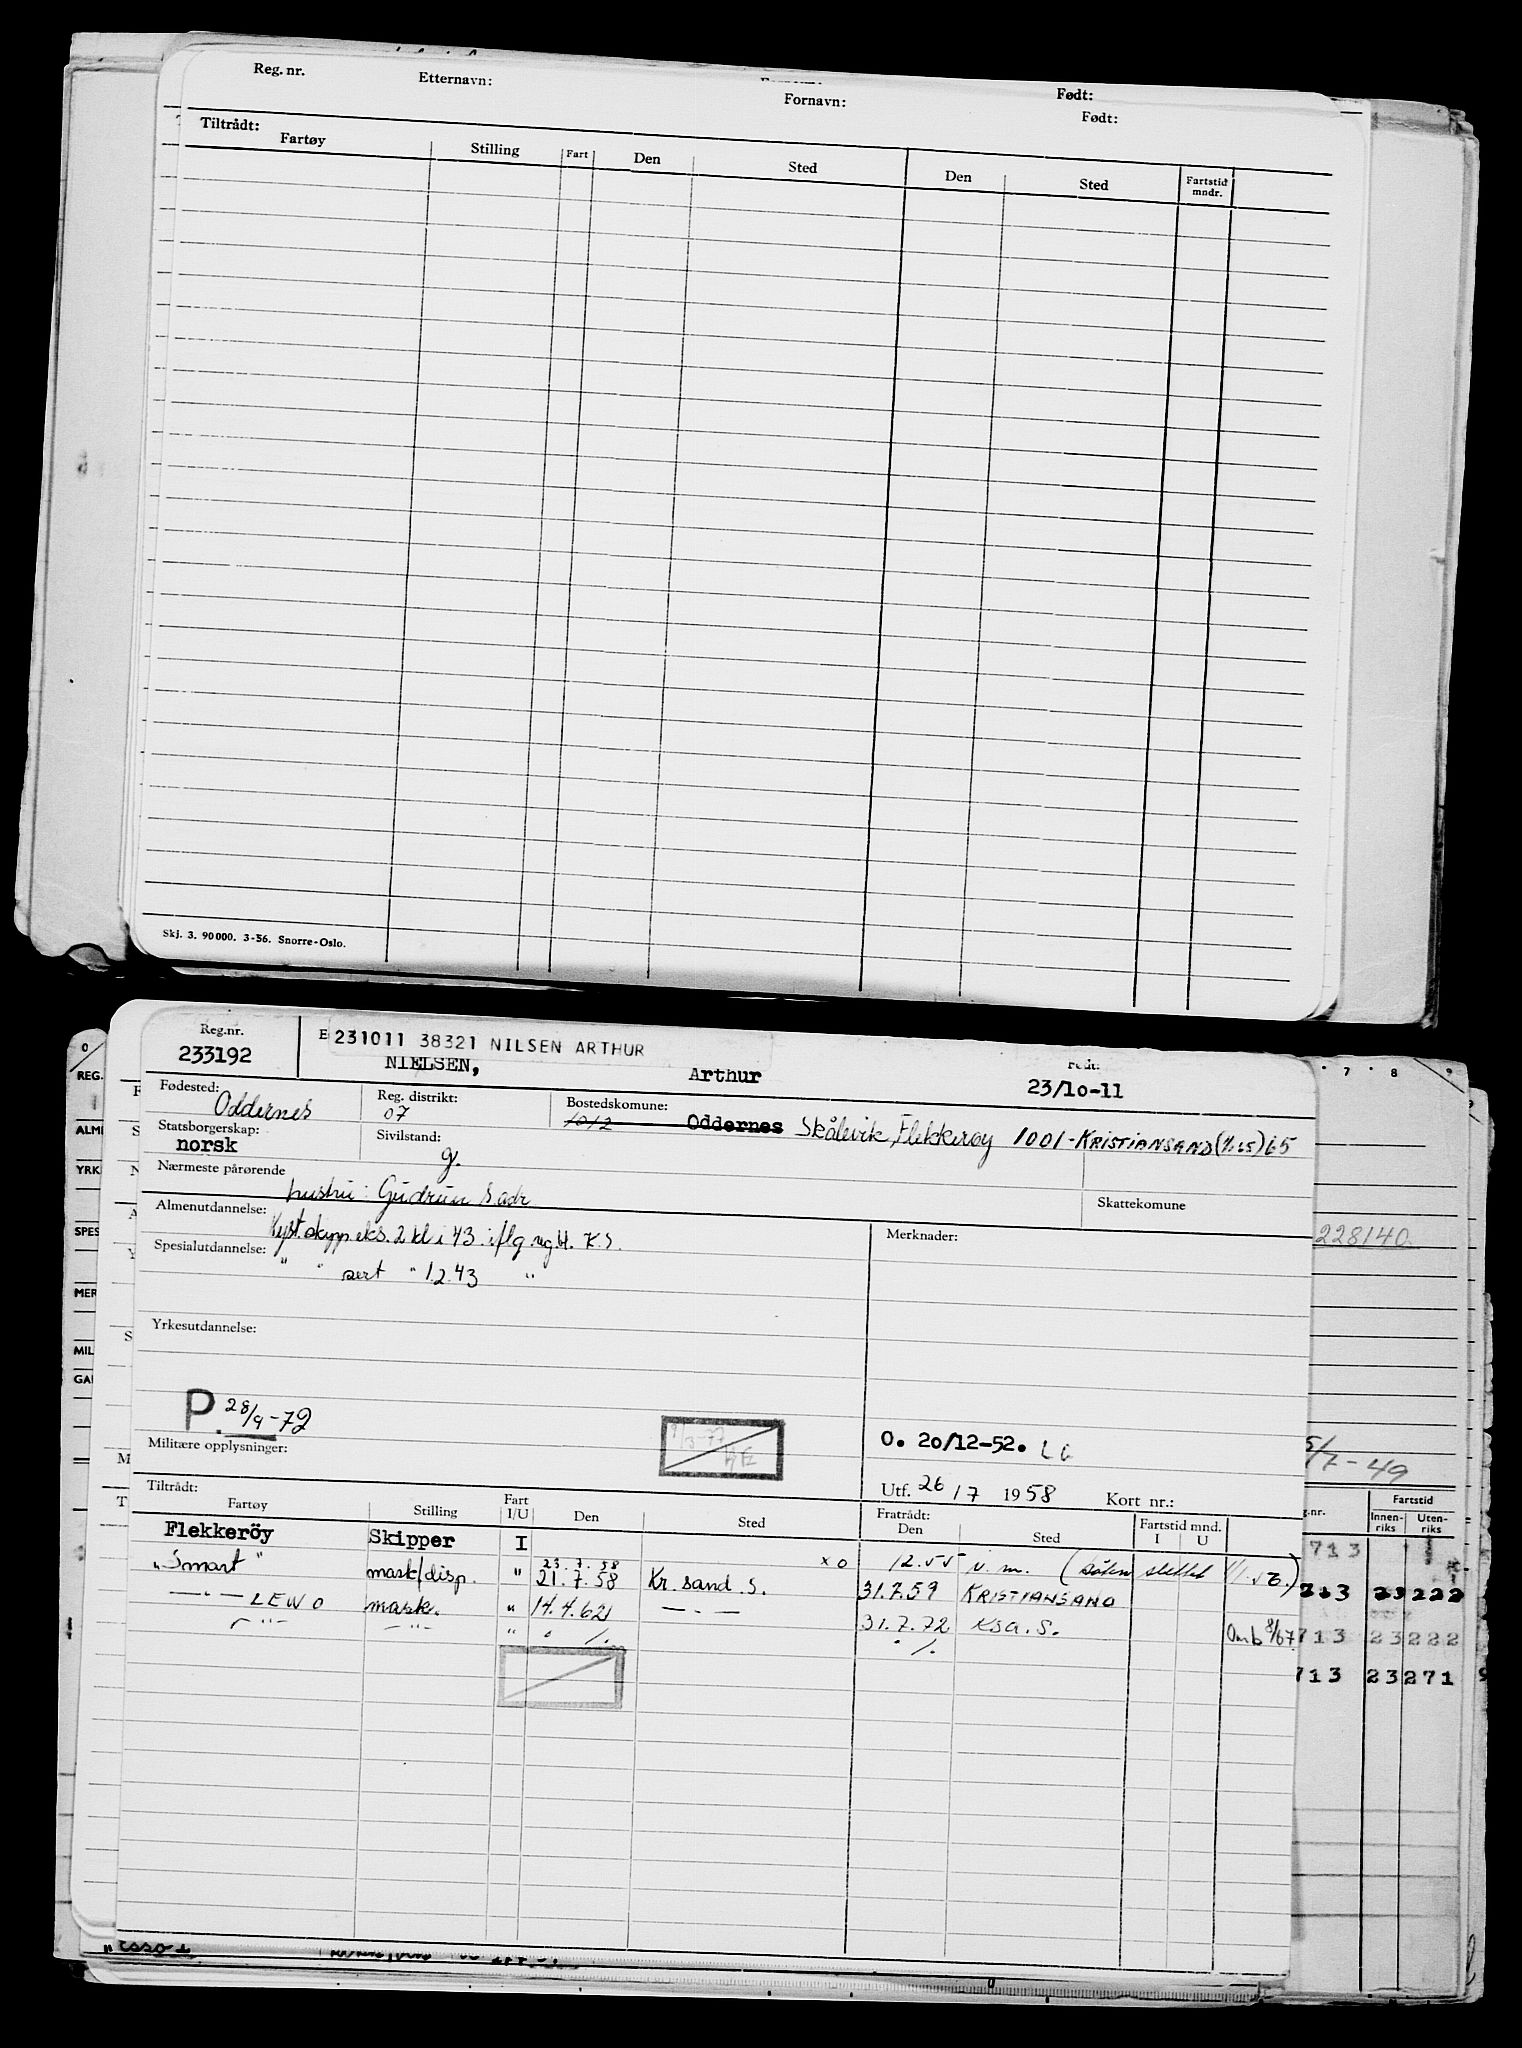 Reg. nr. Etternavn: Fornavn: Født:
Født:
Tiltrådt:
Fartøy Stilling Fart Den Sted Den Sted Fartstid mndr.
Skj. 3. 90000. 3-56. Snorre-Oslo.
Reg.nr.
233192
E 231011 38321 NILSEN ARTHUR
NIELSEN, Arthur
Født:
23/10-11
Fødested: Oddernes
Reg. distrikt: 07
Bostedskomune: 1012 Oddernes Skålevik, Flekkerøy 1001-KRISTIANSAND (1/1 65) 65
Statsborgerskap: norsk
Sivilstand: g.
Nærmeste pårørende
hustru: Gudrun s adr
Skattekomune
Almenutdannelse:
Kyst.skipp.eks. 2 kl i 43 iflg reg.bl. K.S.
Merknader:
Spesialutdannelse:
" " sert " 12.43 "
Yrkesutdannelse:
P. 28/9-72
Militære opplysninger:
O. 20/12-52. LG
Utf. 26/7 1958 Kort nr.:
Tiltrådt: Fratrådt:
Fartøy Stilling Fart I/U Den Sted Den Sted Fartstid mnd. I U
Flekkeröy Skipper I
"Smart" mask/disp. " 23.7.58 xo 12.55 u.m. (båten slettet 1/1.56.)
21.7.58 Kr.sand.S. 31.7.59 KRISTIANSAND
— " — LEWO mask. " 14.4.62 — " — 31.7.72 Ksa.S.
— " — — " — " " /. " /. Omb 8/67
REG.
ALM
YRK
SPES
MER
MIL
GA
7 8 9
228140
5/7-49
g.nr. Fartstid
Innen-riks Uten-riks
713
713 23222
713 23222
713 23271